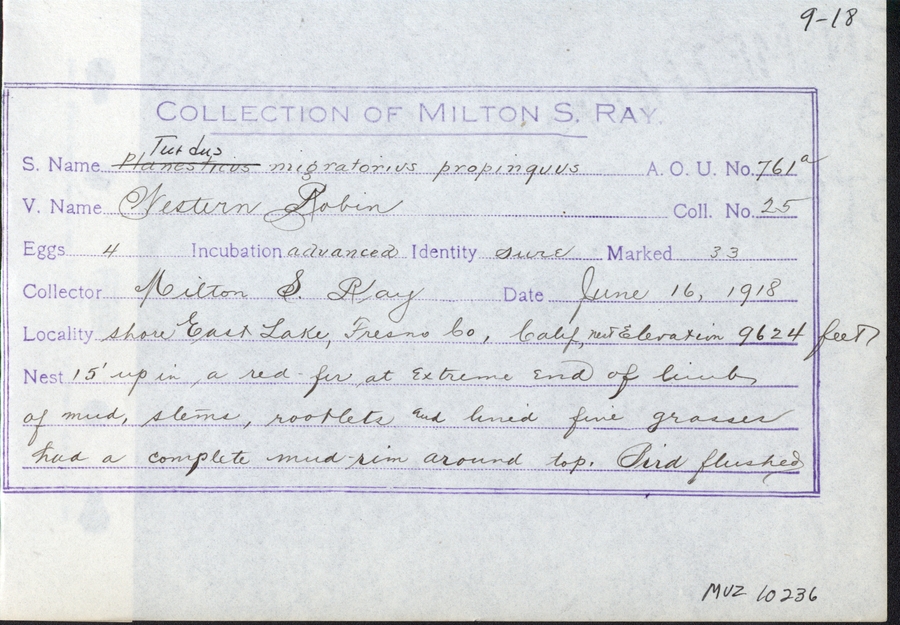 9-18
COLLECTION OF MILTON S. RAY.
Turdus
S. Name Planesticus migratorius propinquus A. O. U. No. 761a
V. Name Western Robin Coll. No. 25
Eggs 4 Incubation advanced Identity sure Marked 33
Collector Milton S. Ray Date June 16, 1918
Locality shore East Lake, Fresno Co, Calif, Elevation 9624 feet
Nest 15' up in a red-fir at extreme end of limb
of mud, stems, rootlets and lined fine grasses
had a complete mud rim around top. Bird flushed
MVZ 10236